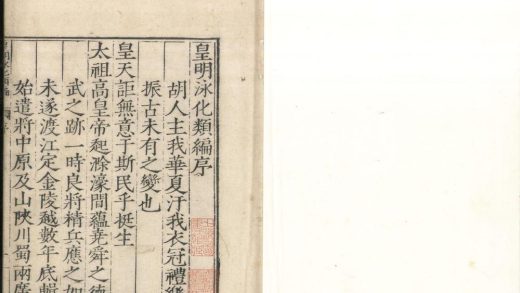 皇明泳化類編序
胡人主我華夏汙我衣冠禮樂
振古未有之變也
皇天詎無意于斯民乎挺生
太祖高皇帝起滁濠間蘊堯舜之德
武之跡一時良將精兵應之如
未遂渡江定金陵越數年底輯
始遣將中原及山陝川蜀兩廣